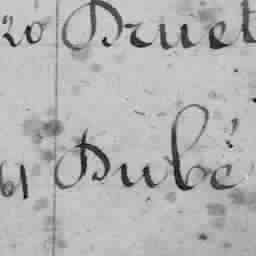 20 Druet
61 Dubé